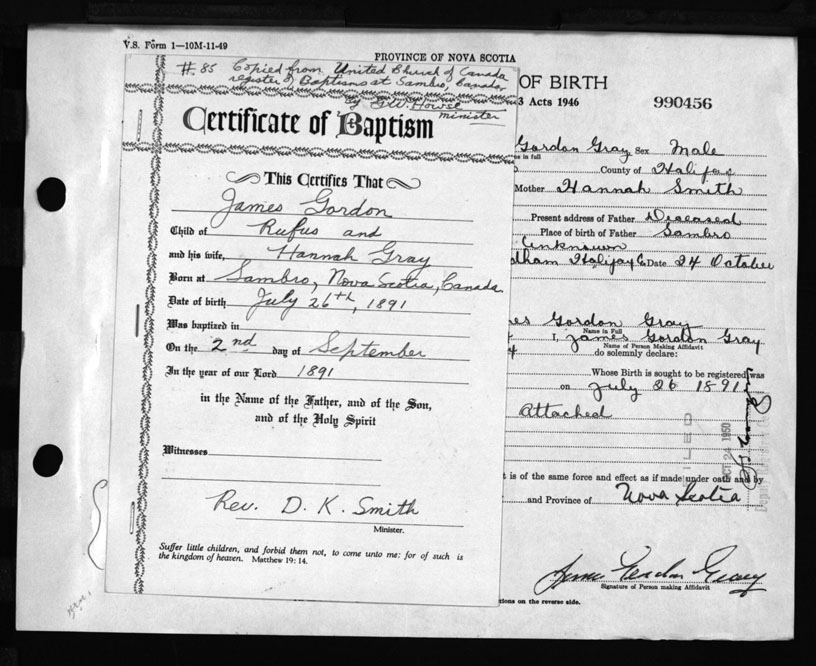 V.S. Form 1—10M-11-49
PROVINCE OF NOVA SCOTIA
#85 Copied from United Church of Canada
register of Baptisms at Sambro, Canada,
by Howse
minister
Certificate of Baptism
This Certifies That
James Gordon
Child of Rufus and
and his wife, Hannah Gray
Born at Sambro, Nova Scotia, Canada
Date of birth July 26th, 1891
Was baptized in
On the 2nd day of September
In the year of our Lord 1891
in the Name of the Father, and of the Son,
and of the Holy Spirit
Witnesses
Rev. D. K. Smith
Minister.
Suffer little children, and forbid them not, to come unto me: for of such is
the kingdom of heaven. Matthew 19: 14.
OF BIRTH
3 Acts 1946 990456
Gordon Gray Sex Male
in full
County of Halifax
Mother Hannah Smith
Present address of Father Deceased
Place of birth of Father Sambro
Unknown
Halifax Co Date 24 October
Gordon Gray
Name in Full
I, James Gordon Gray
Name of Person Making Affidavit
do solemnly declare:
Whose Birth is sought to be registered was
on July 26 1891
Attached
OCT 24 1950
is of the same force and effect as if made under oath and by
and Province of Nova Scotia
James Gordon Gray
Signature of Person making Affidavit
on the reverse side.